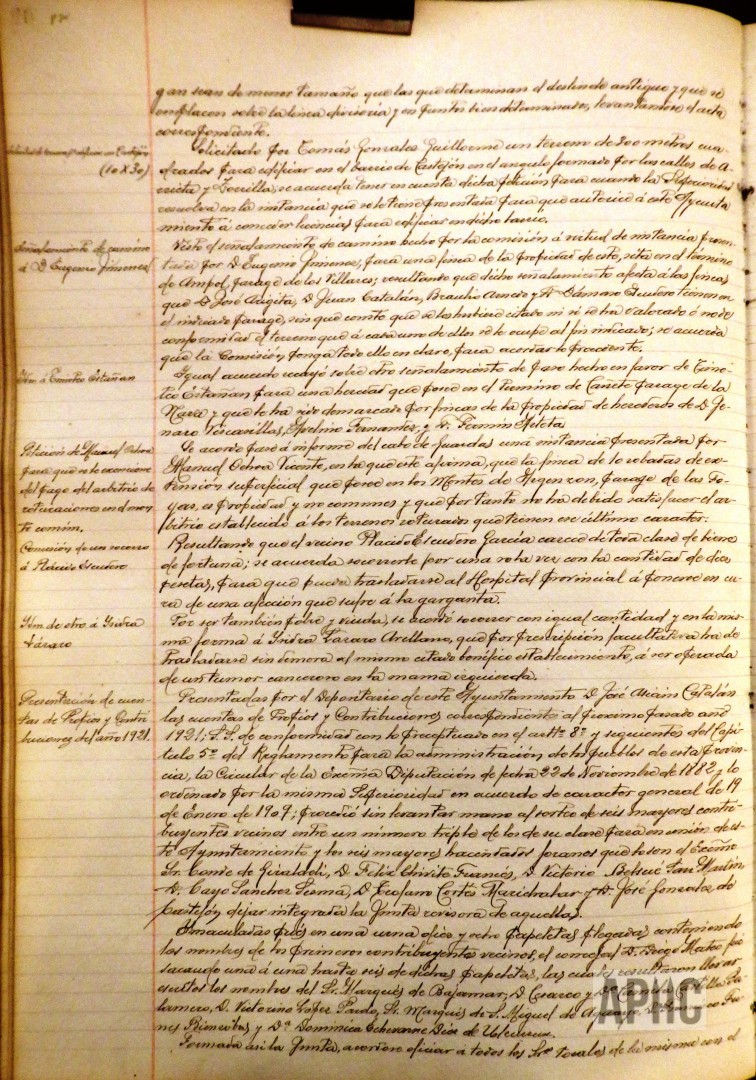 gan sean de menor tamaño que las que determinan el deslinde antiguo y que se
emplacen sobre la linea divisoria y en puntos bien determinados, levantandose el acta
correspondiente.
(10 X 30)
Solicitado por Tomás Gonzalez Guillorme un terreno de 300 metros cua
drados para edificar en el barrio de Castejón en el angulo formado por las calles de A-
rrieta y Zorrilla, se acuerda tener en cuenta dicha petición para cuando la Superioridad
resuelva en la instancia que se le tiene presentada para que autorice á este Ayunta
miento á conceder licencias para edificar en dicho barrio.
Señalamiento de camino
á D. Eugenio Jimenez
Visto el señalamiento de camino hecho por la comisión á virtud de instancia presen-
tada por D. Eugenio Jimenez, para una finca de la propiedad de este, sita en el término
de Ampol, parage de los Villares; resultando que dicho señalamiento afecta á las fincas
que D. José D. Juan Catalán, Braulio y D. Dámaso Escudero tienen en
el indicado parage, sin que conste que se les hubiere citado ni si se ha valorado ó no de
conformidad el terreno que á cada uno de ellos se le ocupe al fin indicado; se acuerda
que la Comisión ponga todo ello en claro, para acordar lo procedente.
Idm á Timoteo Estañan
Igual acuerdo recayó sobre otro señalamiento de pase hecho en favor de Timo-
teo Estañan para una heredad que posee en el termino de Cañete parage de la
Nava y que le ha sido demarcado por fincas de la propiedad de herederos de D. Je-
naro Vizcanillas, Avelino Fernandez, y D. Fermin Meleta
Petición de Manuel Ochoa
para que se le exonere
del pago del arbitrio de
roturaciones en el mon-
te comun.
Se acordó pase á informe del cabo de Guardas una instancia presentada por
Manuel Ochoa Vicente, en la que este afirma, que la finca de 10 robadas de ex-
tensión superficial que posee en los Montes de Argenzon, parage de las Fo-
yas, es propiedad y no comunes y que por tanto no ha debido satisfacer el ar-
bitrio establecido á los terrenos roturados que tienen ese último caracter.
Concesión de un socorro
á Plácido Escudero
Resultando que el vecino Placido Escudero Garcia carece de toda clase de bienes
de fortuna; se acuerda socorrerle por una sola vez con la cantidad de diez
pesetas, para que pueda trasladarse al Hospital Provincial á ponerse en cu-
ra de una afección que sufre á la garganta.
Idm de otro á Isidra
Lázaro
Por ser también pobre y viuda, se acordó socorrer con igual cantidad y en la mis-
ma forma á Isidra Lázaro Arellano, que por prescripción facultativa ha de
trasladarse sin demora al mismo citado benéfico establecimiento, á ser operada
de un tumor canceroso en la mama izquierda.
Presentación de cuen-
tas de Propios y Contri-
buciones del año 1921
Presentadas por el Depositario de este Ayuntamiento D. José Miains Catalán
las cuentas de Propios y Contribuciones correspondiente al proximo pasado año
1921; S.S. de conformidad con lo preceptuado en el artº 8º y siguientes del Capi-
tulo 5º del Reglamento para la administración de los pueblos de esta Provin-
cia, la Circular de la Excma Diputación de fecha 22 de Noviembre de 1882 y lo
ordenado por la misma Superioridad en acuerdo de caracter general de 19
de Enero de 1907; procedió sin levantar mano al sorteo de seis mayores contri-
buyentes vecinos entre un número triple de los de su clase para en unión de es-
te Ayuntamiento y los seis mayores hacendados foranos que lo son el Excmo
Sr. Conde de Giraldeli, D. Feliz Chivite Francés, D. Victorio San Martin
D. Cayo Sanchez Lerma, D. Teofano Cortés Marichalar y D. José Gonzalez de
Castejón dejar integrada la Junta revisora de aquellas.
Insaculadas pues en una urna diez y ocho papeletas plegadas, conteniendo
los nombres de los primeros contribuyentes vecinos, el concejal D. Diego Mateo fue
sacando una á una hasta seis de dichas papeletas, las cuales resultaron llevar
escritos los nombres del Sr. Marqués de Bajamar, D.
D. Victorino Lopez Pardo, Sr. Marqués de S. Miguel de
y Dª Dominica Echevarne Diez de Ulzurrun.
Formada asi la Junta, acordose oficiar á todos los Sres vocales de la misma con el
APHC